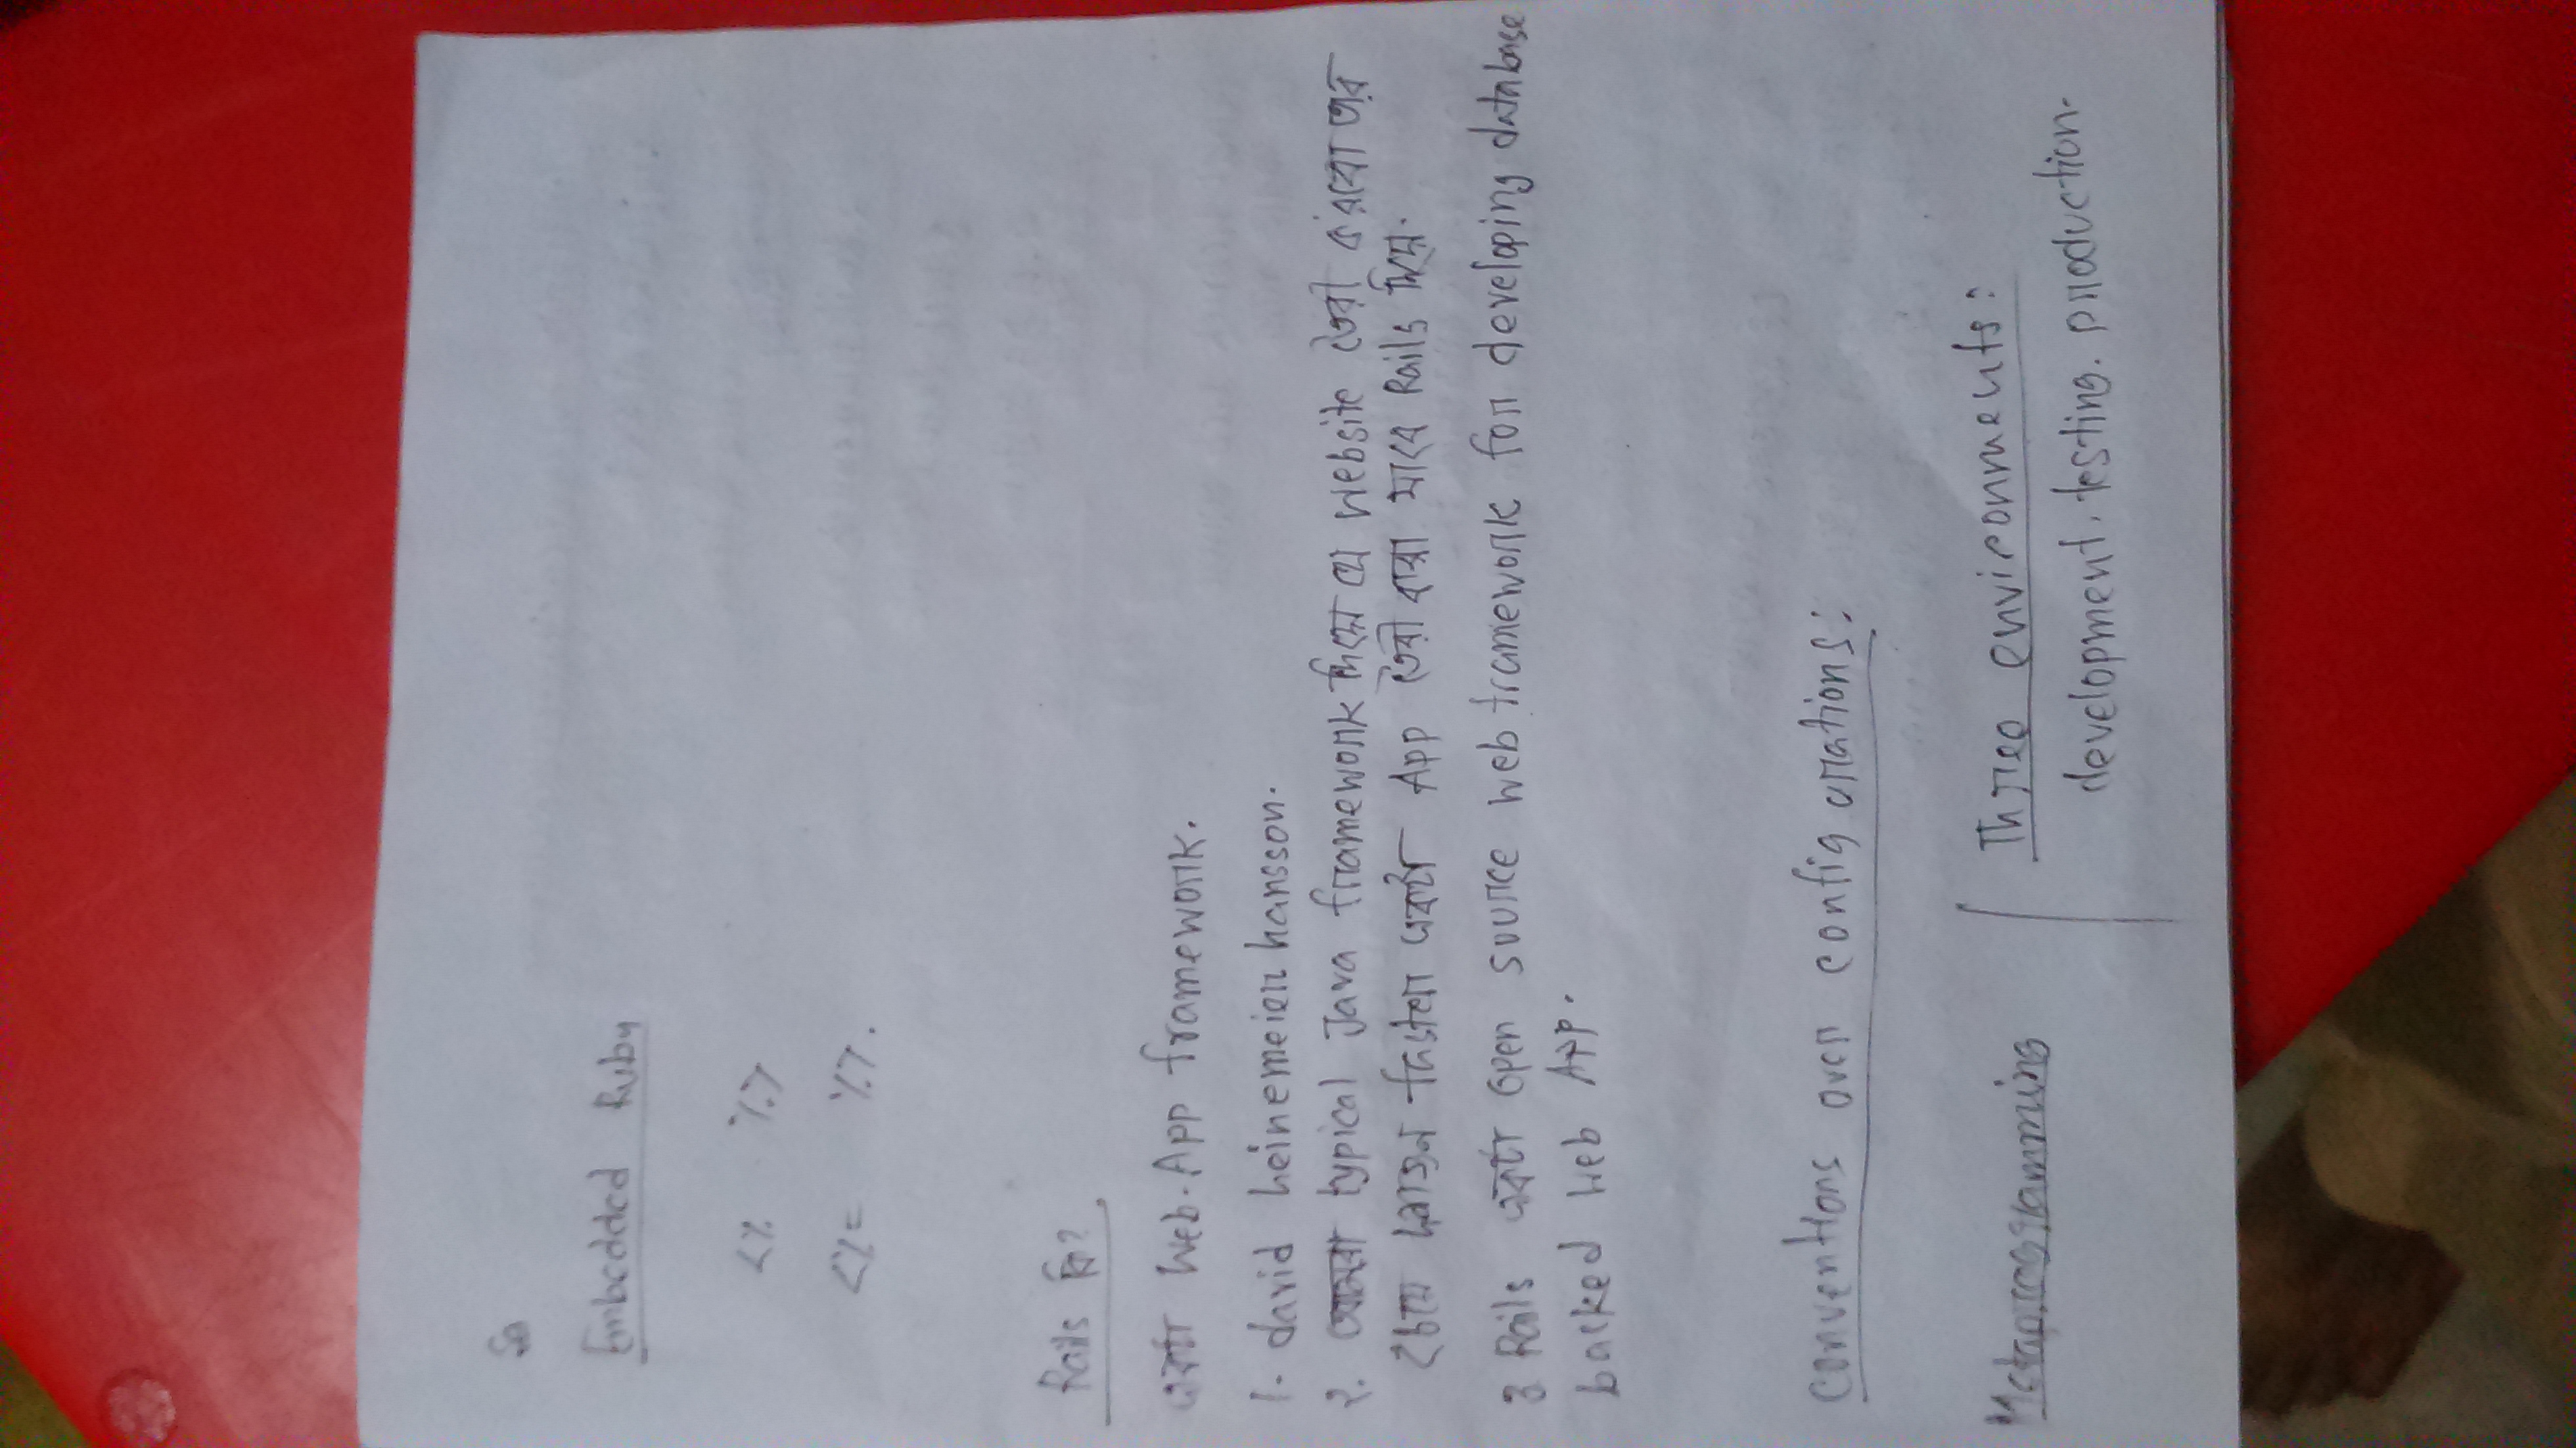 Embedded Ruby
<% %>
<%= %>.
Rails কি?
একটা Web.App framework.
1. david heinemeier hansson.
2. আমরা typical Java framework দিয়ে যে website তৈরী করবো তার
চেয়ে faster একটা App তৈরী করা যাবে Rails দিয়ে.
3 Rails একটা open source web framework for developing database
backed web App.
conventions over configurations:
Metaprogramming
Three environments:
development. testing. production.